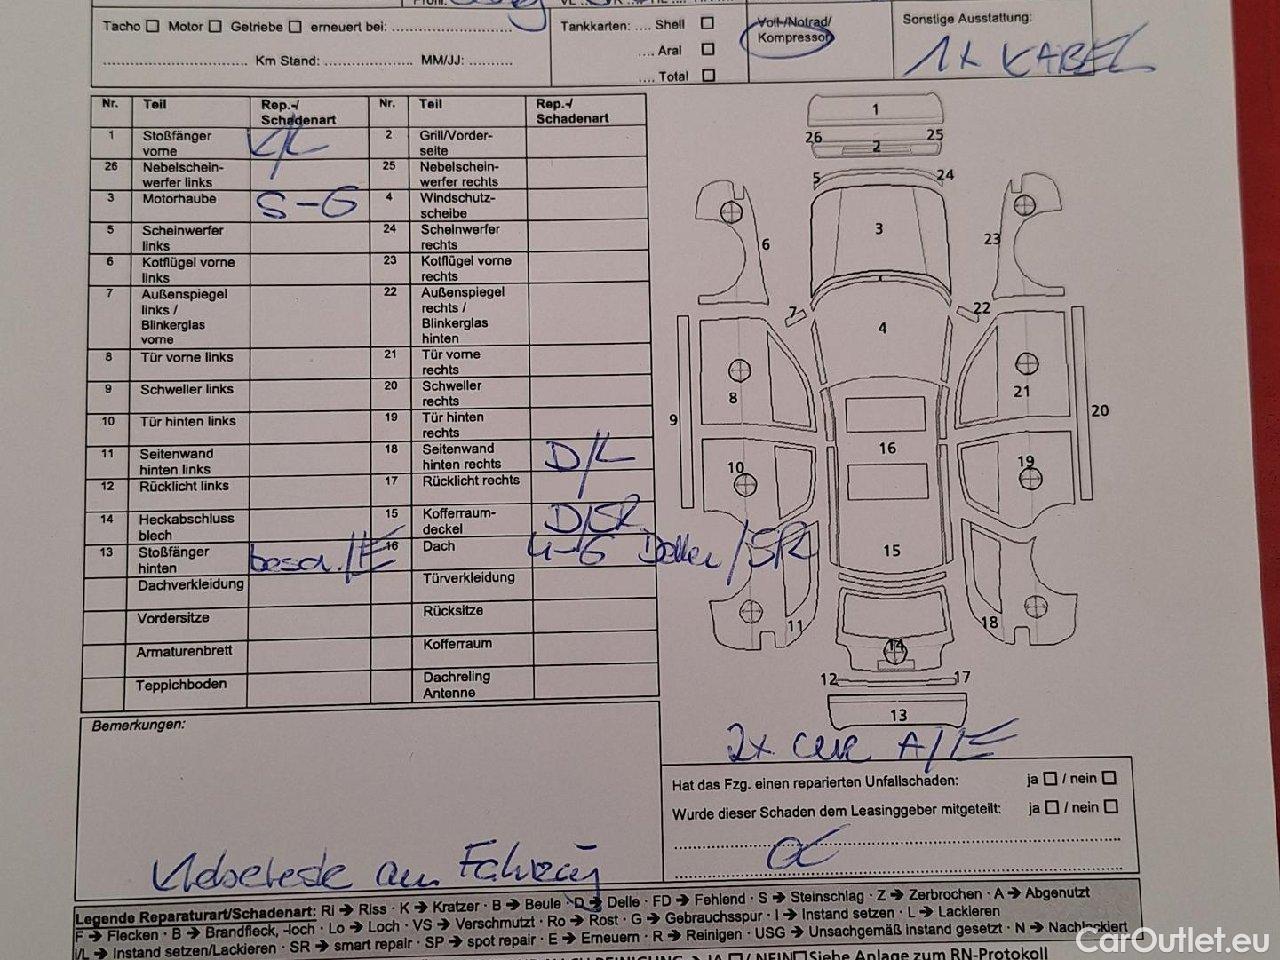 Tacho ☐ Motor ☐ Getriebe ☐ erneuert bei: ..............................
Km Stand: ...................... MM/JJ: ..........
Tankkarten: .... Shell ☐
.... Aral ☐
.... Total ☐
Voll-/Notrad/
Kompressor
Sonstige Ausstattung:
1x KABEL
Nr. Teil Rep.-/ Schadenart Nr. Teil Rep.-/ Schadenart
1 Stoßfänger vorne K/L 2 Grill/Vorder-seite
26 Nebelschein-werfer links 25 Nebelschein-werfer rechts
3 Motorhaube S-G 4 Windschutz-scheibe
5 Scheinwerfer links 24 Scheinwerfer rechts
6 Kotflügel vorne links 23 Kotflügel vorne rechts
7 Außenspiegel links / Blinkerglas vorne 22 Außenspiegel rechts / Blinkerglas hinten
8 Tür vorne links 21 Tür vorne rechts
9 Schweller links 20 Schweller rechts
10 Tür hinten links 19 Tür hinten rechts
11 Seitenwand hinten links 18 Seitenwand hinten rechts D/L
12 Rücklicht links 17 Rücklicht rechts
14 Heckabschluss blech 15 Kofferraum-deckel D/SR
13 Stoßfänger hinten besch./E 16 Dach 4-6 Dellen/SR
Dachverkleidung Türverkleidung
Vordersitze Rücksitze
Armaturenbrett Kofferraum
Teppichboden Dachreling Antenne
1
26 25
2
5 24
3
6 23
7 22
4
8 21
9 20
16
10 19
15
11 18
14
12 17
13
2x A/E
Bemerkungen:
Klebereste am Fahrzeug
Hat das Fzg. einen reparierten Unfallschaden: ja ☐ / nein ☐
Wurde dieser Schaden dem Leasinggeber mitgeteilt: ja ☐ / nein ☐
Legende Reparaturart/Schadenart: Ri → Riss · K → Kratzer · B → Beule · D → Delle · FD → Fehlend · S → Steinschlag · Z → Zerbrochen · A → Abgenutzt
F → Flecken · B → Brandfleck, -loch · Lo → Loch · VS → Verschmutzt · Ro → Rost · G → Gebrauchsspur · I → Instand setzen · L → Lackieren
I/L → Instand setzen/Lackieren · SR → smart repair · SP → spot repair · E → Erneuern · R → Reinigen · USG → Unsachgemäß instand gesetzt · N → Nachlackiert
NACH REINIGUNG → JA ☐ / NEIN ☐ Siehe Anlage zum RN-Protokoll
CarOutlet.eu